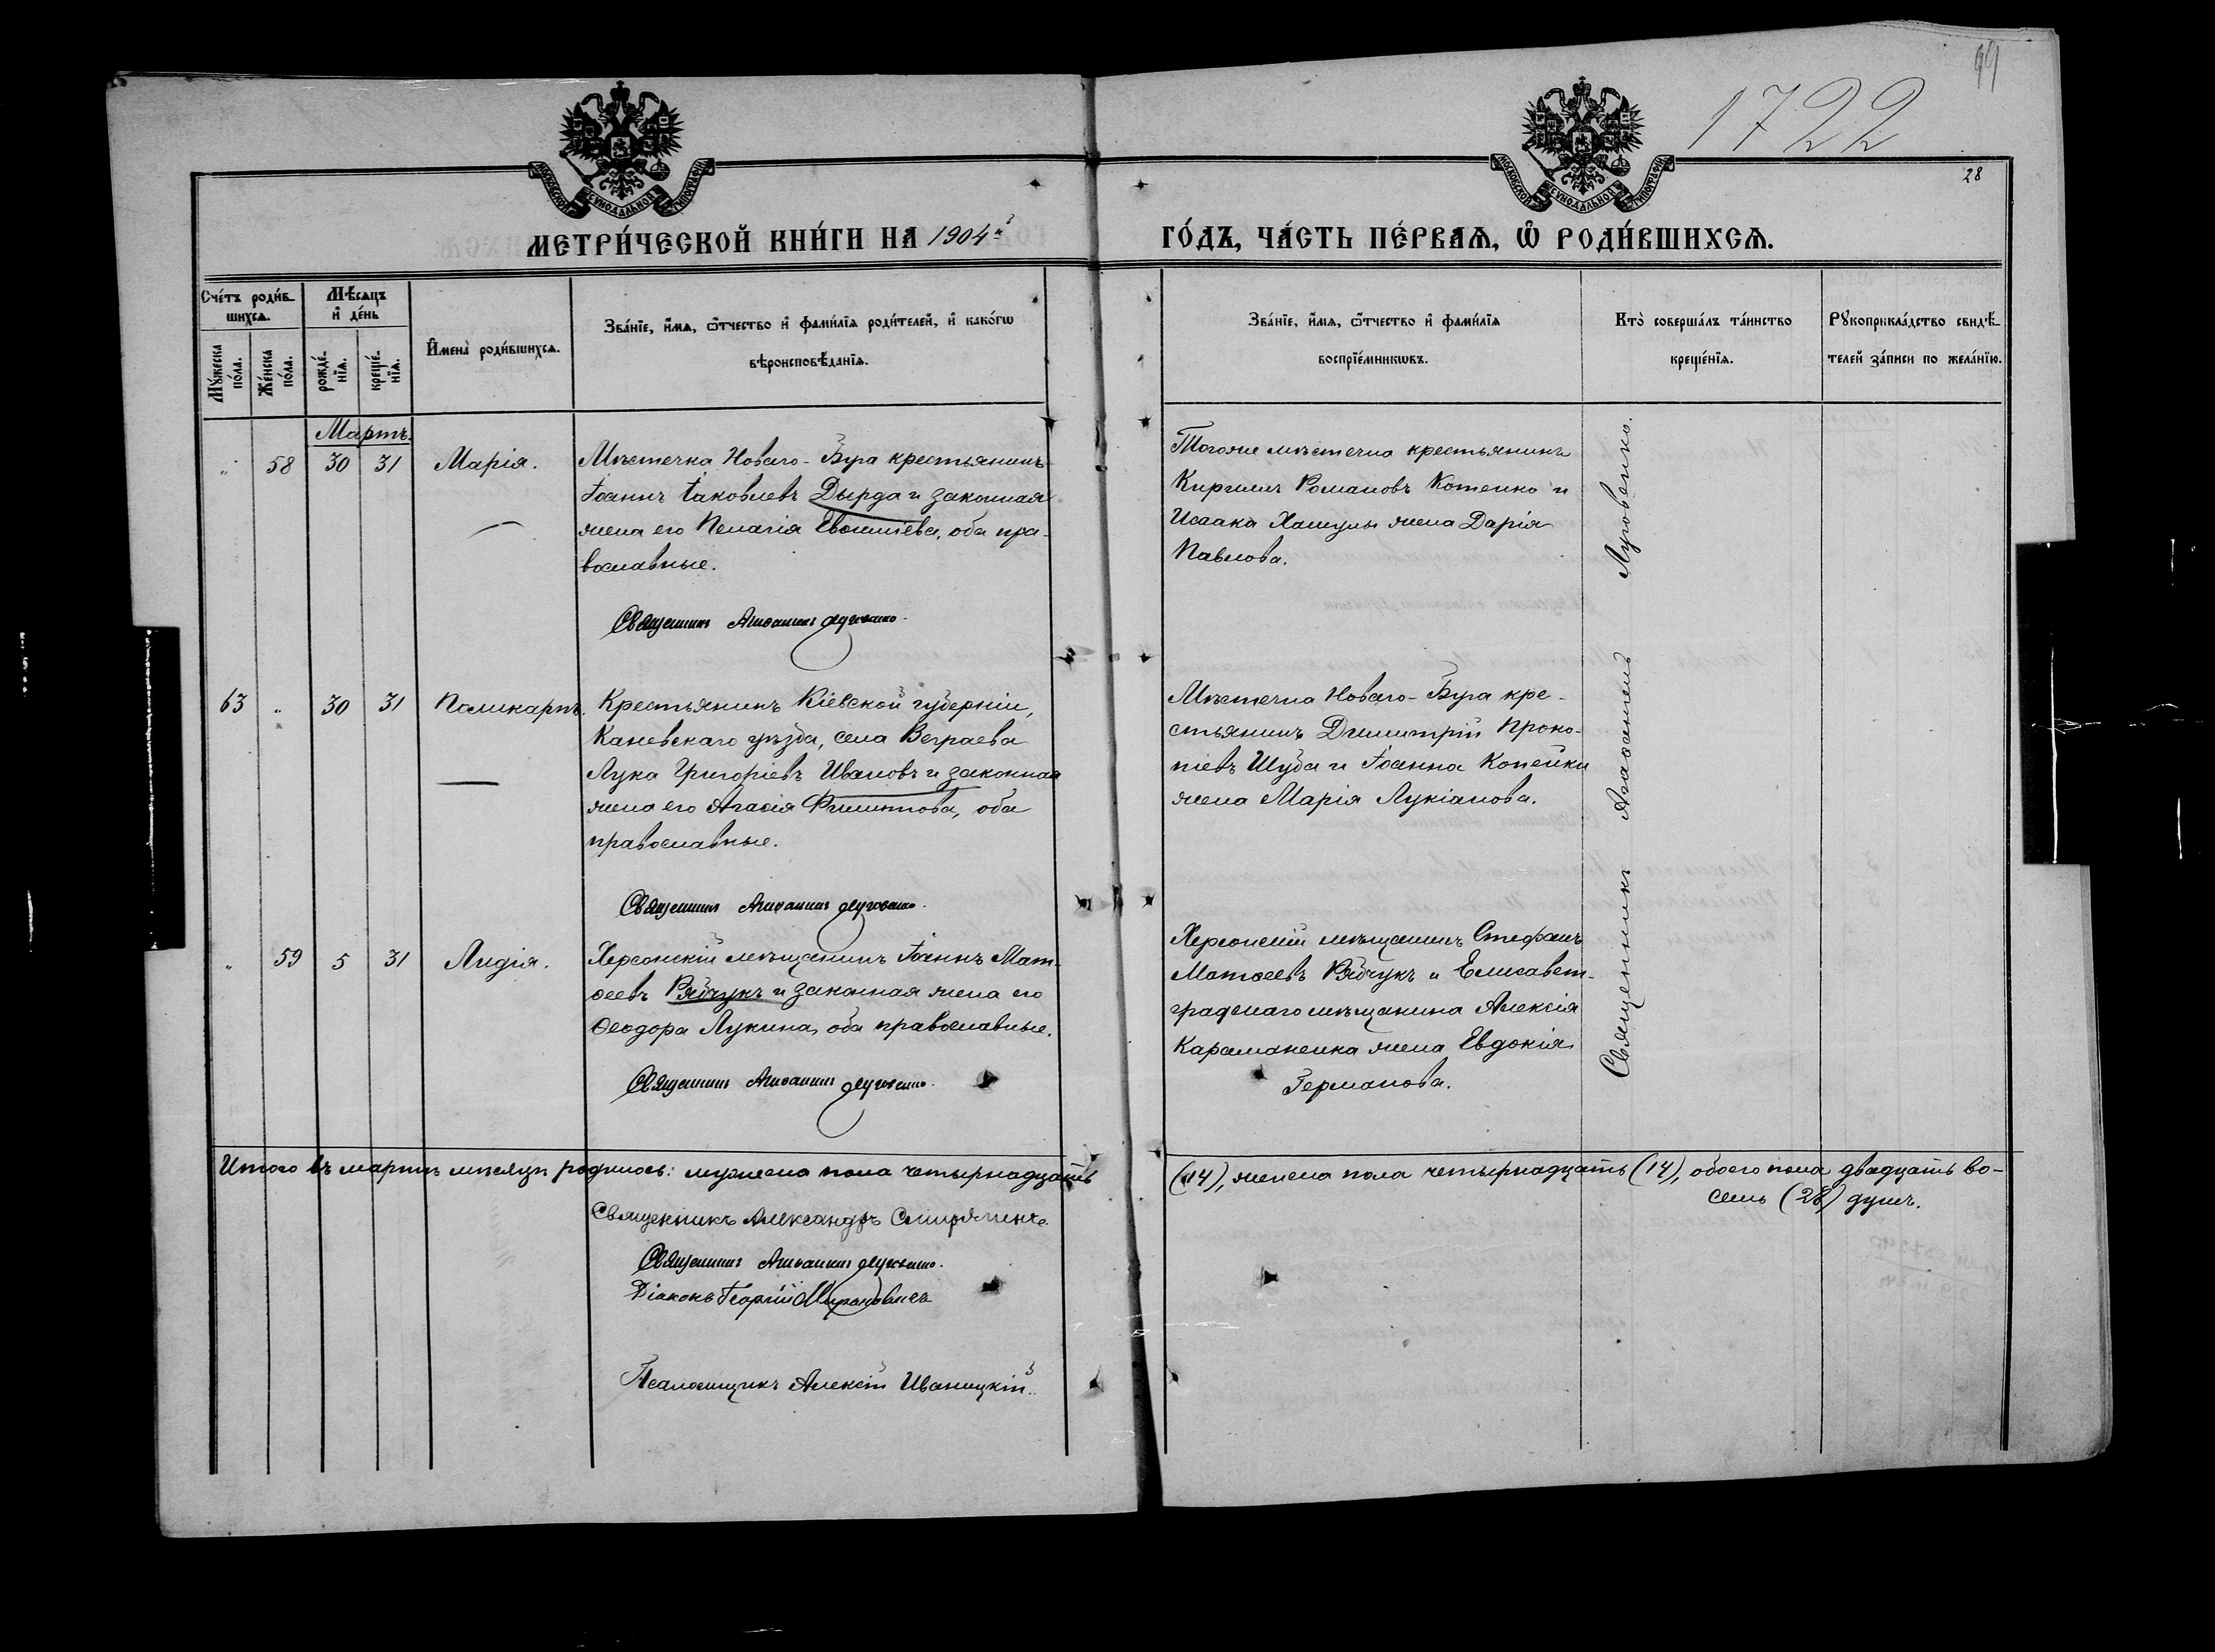 99
1722
28
МОСКОВСКОЙ СѴНОДАЛЬНОЙ ТИПОГРАФІИ
МОСКОВСКОЙ СѴНОДАЛЬНОЙ ТИПОГРАФІИ
МЕТРИ́ЧЕСКОЙ КНИ́ГИ НА 1904й
ГО́ДЪ, ЧА́СТЬ ПЕ́РВАѦ, Ѽ РОДИ́ВШИХСѦ.
Сче́тъ роди́в-
шихсѧ.
Мꙋ́жеска по́ла.
Же́нска по́ла.
Мѣ́сѧцъ
и҆ де́нь
рожде́-
нїѧ.
креще́-
нїѧ.
И҆мена̀ роди́вшихсѧ.
Зва́нїе, и҆́мѧ, ѻ҆́тчество и҆ фами́лїѧ роди́телей, и҆ како́гѡ
вѣроисповѣ́данїѧ.
Зва́нїе, и҆́мѧ, ѻ҆́тчество и҆ фами́лїѧ
воспрїе́мникѡвъ.
Кто̀ соверша́лъ та́инство
креще́нїѧ.
Рꙋкоприкла́дство свидѣ́-
телей за́писи по жела́нїю.
Мартъ.
„ 58 30 31 Марія.
Мѣстечка Новаго-Буга крестьянинъ
Іоаннъ Іаковлевъ Дырда и законная
жена его Пелагія Евѳиміева, оба пра-
вославные.
Священникъ Аѳанасій Луговенко.
Тогоже мѣстечка крестьянинъ
Кириллъ Романовъ Котенко и
Исаака Хашулы жена Дарія
Павлова.
63 „ 30 31 Поликарпъ.
Крестьянинъ Кіевской губерніи,
Каневскаго уѣзда, села Беграева
Лука Григоріевъ Ивановъ и законная
жена его Агаѳія Филиппова, оба
православные.
Священникъ Аѳанасій Луговенко.
Мѣстечка Новаго-Буга кре-
стьянинъ Димитрій Проко-
піевъ Шуба и Іоанна Копейки
жена Марія Лукіанова.
„ 59 5 31 Лидія.
Херсонскій мѣщанинъ Іоаннъ Мат-
ѳеевъ Рябчукъ и законная жена его
Ѳеодора Лукина, оба православные.
Священникъ Аѳанасій Луговенко.
Херсонскій мѣщанинъ Стефанъ
Матѳеевъ Рябчукъ и Елисавет-
градскаго мѣщанина Алексія
Караманенка жена Евдокія
Германова.
Священникъ Аѳанасій Луговенко.
Итого въ мартѣ мѣсяцѣ родилось: мужеска пола четырнадцать
(14), женска пола четырнадцать (14), обоего пола двадцать во-
семь (28) душъ.
Священникъ Александръ
Священникъ Аѳанасій Луговенко.
Діаконъ Георгій Мирановичъ
Псаломщикъ Алексій Иваницкій.